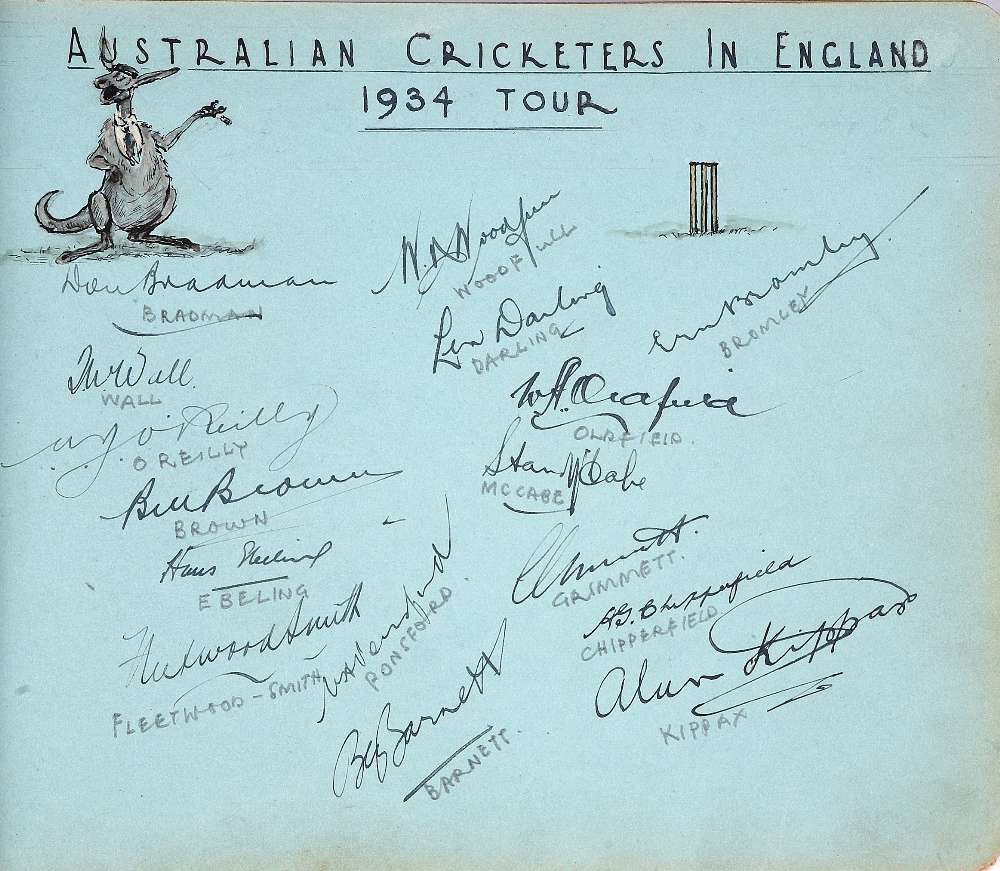 AUSTRALIAN CRICKETERS IN ENGLAND
1934 TOUR
Don Bradman
BRADMAN
W.M Woodfull
WOODFULL
Len Darling
DARLING
Ern Bromley
BROMLEY
T.W Wall.
WALL
W.A. Oldfield
OLDFIELD.
W.J. O'Reilly
O REILLY
Stan McCabe
MCCABE
Bill Brown
BROWN
Hans Ebeling
EBELING
C.V. Grimmett.
GRIMMETT.
A.G. Chipperfield
CHIPPERFIELD
Fleetwood Smith
FLEETWOOD-SMITH
W.H Ponsford
PONSFORD
Alan Kippax
KIPPAX
B.A. Barnett
BARNETT.